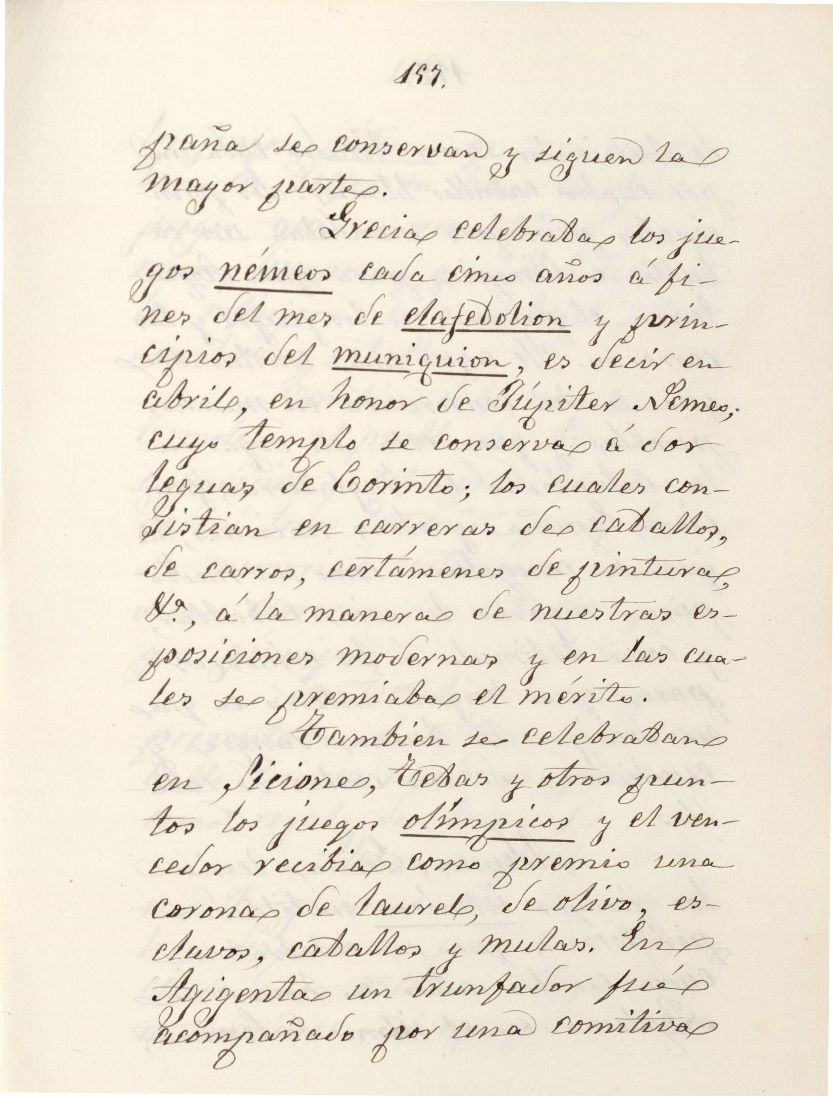 157.
paña se conservan y siguen la
mayor parte.
Grecia celebraba los jue-
gos némeos cada cinco años á fi-
nes del mes de elafebolion y prin-
cipios del muniquion, es decir en
abril, en honor de Júpiter Nemeo,
cuyo templo se conserva á dos
leguas de Corinto; los cuales con-
sistian en carreras de caballos,
de carros, certámenes de pintura,
&a., á la manera de nuestras es-
posiciones modernas y en las cua-
les se premiaba el mérito.
Tambien se celebraban
en Sicione, Tebas y otros pun-
tos los juegos olímpicos y el ven-
cedor recibia como premio una
corona de laurel, de olivo, es-
clavos, caballos y mulas. En
Agigenta un trunfador fué
acompañado por una comitiva